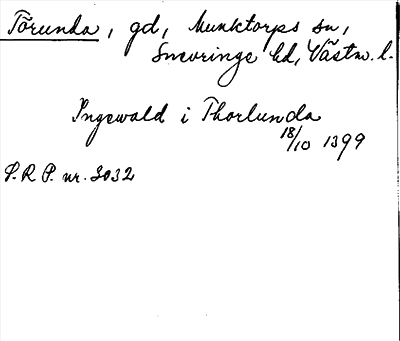 Törunda, gd, Munktorps sn,
Snevringe hd, Västm. l.
Ingewald i Thorlunda
18/10 1399
S.R.P. nr. 3032